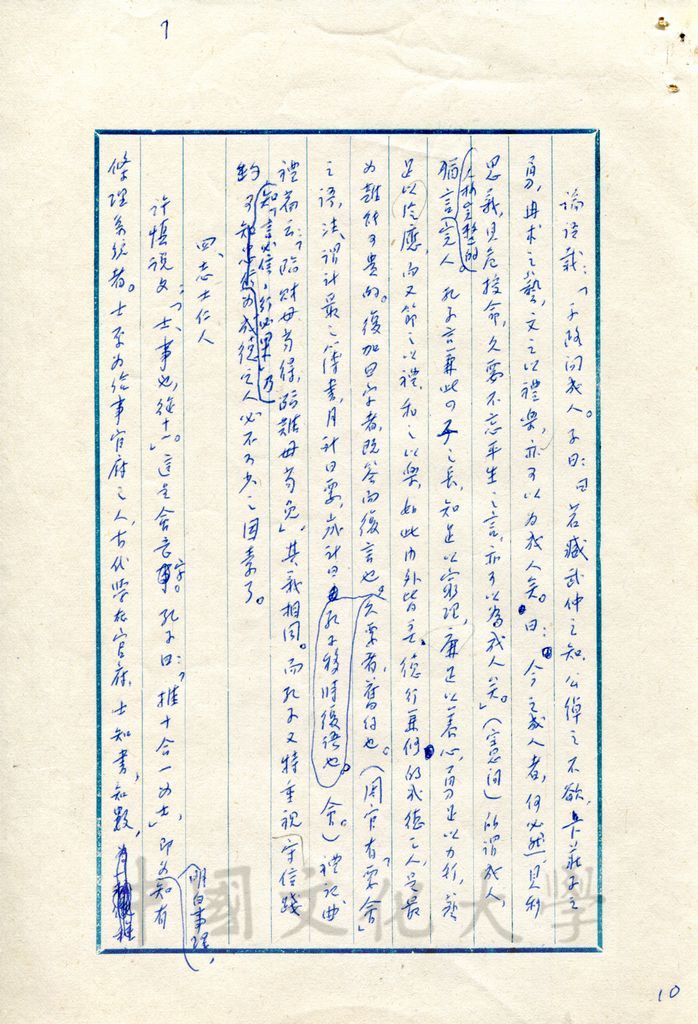 7
論語載：「子路問成人。子曰：曰若臧武仲之知，公綽之不欲，卞莊子之
勇，冉求之藝，文之以禮樂，亦可以為成人矣。曰：今之成人者，何必然，見利
思義，見危授命，久要不忘平生之言，亦可以為成人矣。」(憲問)所謂成人，
猶言完人 孔子言兼此四子之長，知足以窮理，廉足以養心，勇足以力行，藝
人格完整的
足以泛應，而又節之以禮，和之以樂，如此內外皆善，德行兼修的成德之人，是最
為難能可貴的。復加曰字者，既答而復言也。久要者，舊約也。(周官有「要會」
之語，法謂計最之簿書，月計曰要，歲計曰 會。)禮記曲
孔子移時復語也。
禮篇云：「臨財毋苟得，臨難毋苟免」，其義相同。而孔子又特重視守信踐
約 乃
知「言必信，行必果」
成德之人必不可少之因素了。
四、志士仁人
許慎說文：「士，事也，從十一。」這是會意字。孔子曰：「推十合一為士」，即為知有
明白事理，
條理系統者。士原為給事官府之人，古代學在官府，士知書，知數，
中國文化大學
10